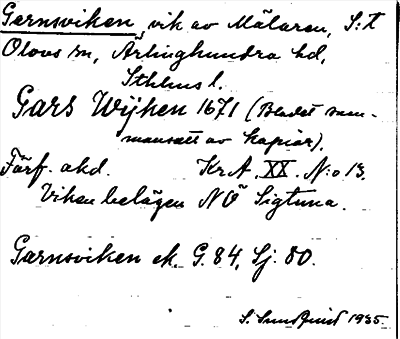 Garnsviken vik av Mälaren, S:t
Olovs sn, Ärlinghundra hd,
Sthlms l.
Gars Wijken 1671 (Bladet sam-
mansatt av kopior).
Förf. okd. Kr A. XX. N:o 13.
Viken belägen NÖ Sigtuna.
Garnsviken ek. G. 84, Sj. 80.
S. Sundquist 1935.